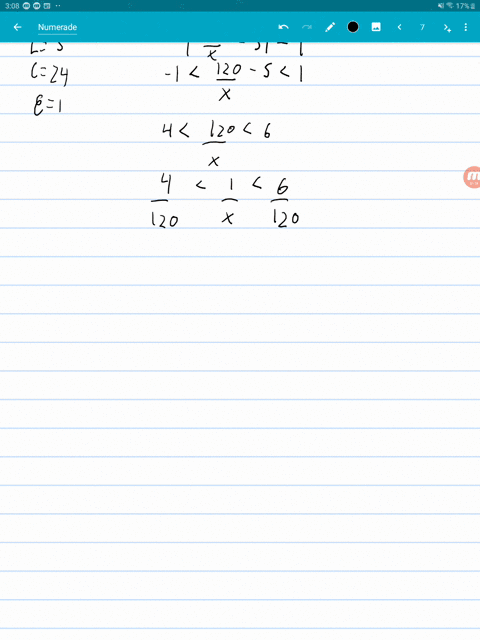 3:08 17%
Numerade 7
L=5
C=24
ε=1
-1 < 120/x - 5 < 1
4 < 120/x < 6
4/120 < 1/x < 6/120